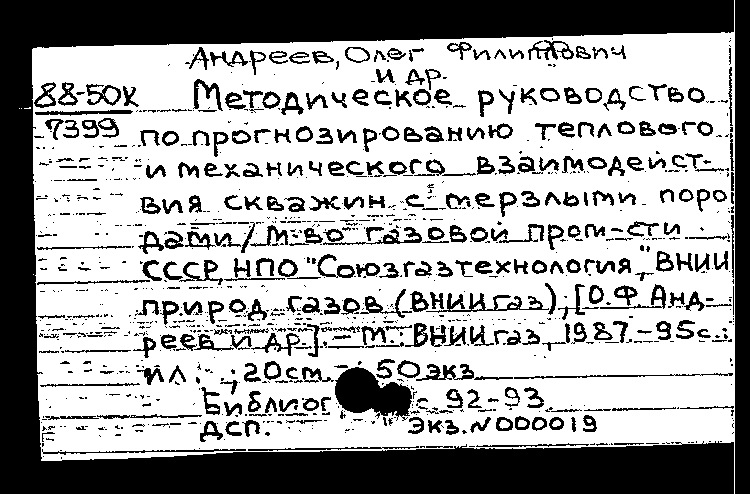 Андреев, Олег Филиппович
и др.
88-50к Методическое руководство
7399 по прогнозированию теплового
и механического взаимодейст-
вия скважин с мерзлыми поро
дами / М-во газовой пром-сти
СССР, НПО "Союзгазтехнология", ВНИИ
природ. газов (ВНИИгаз); [О.Ф. Анд-
реев и др.]. – М.: ВНИИгаз, 1987 – 95с.:
ил. ; 20см. – 50экз
Библиог с 92-93
ДСП. Экз. N000019